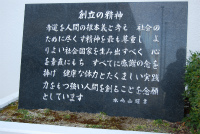 創立の精神
孝道を人間の根本義と考え 社会の
ために尽くす精神を最も尊重し よ
りよい社会国家を生み出すべく 心
を素直にもち すべてに感謝の念を
捧げ 健康な体力とたくましい実践
力をもつ強い人間を創ることを念願
としています